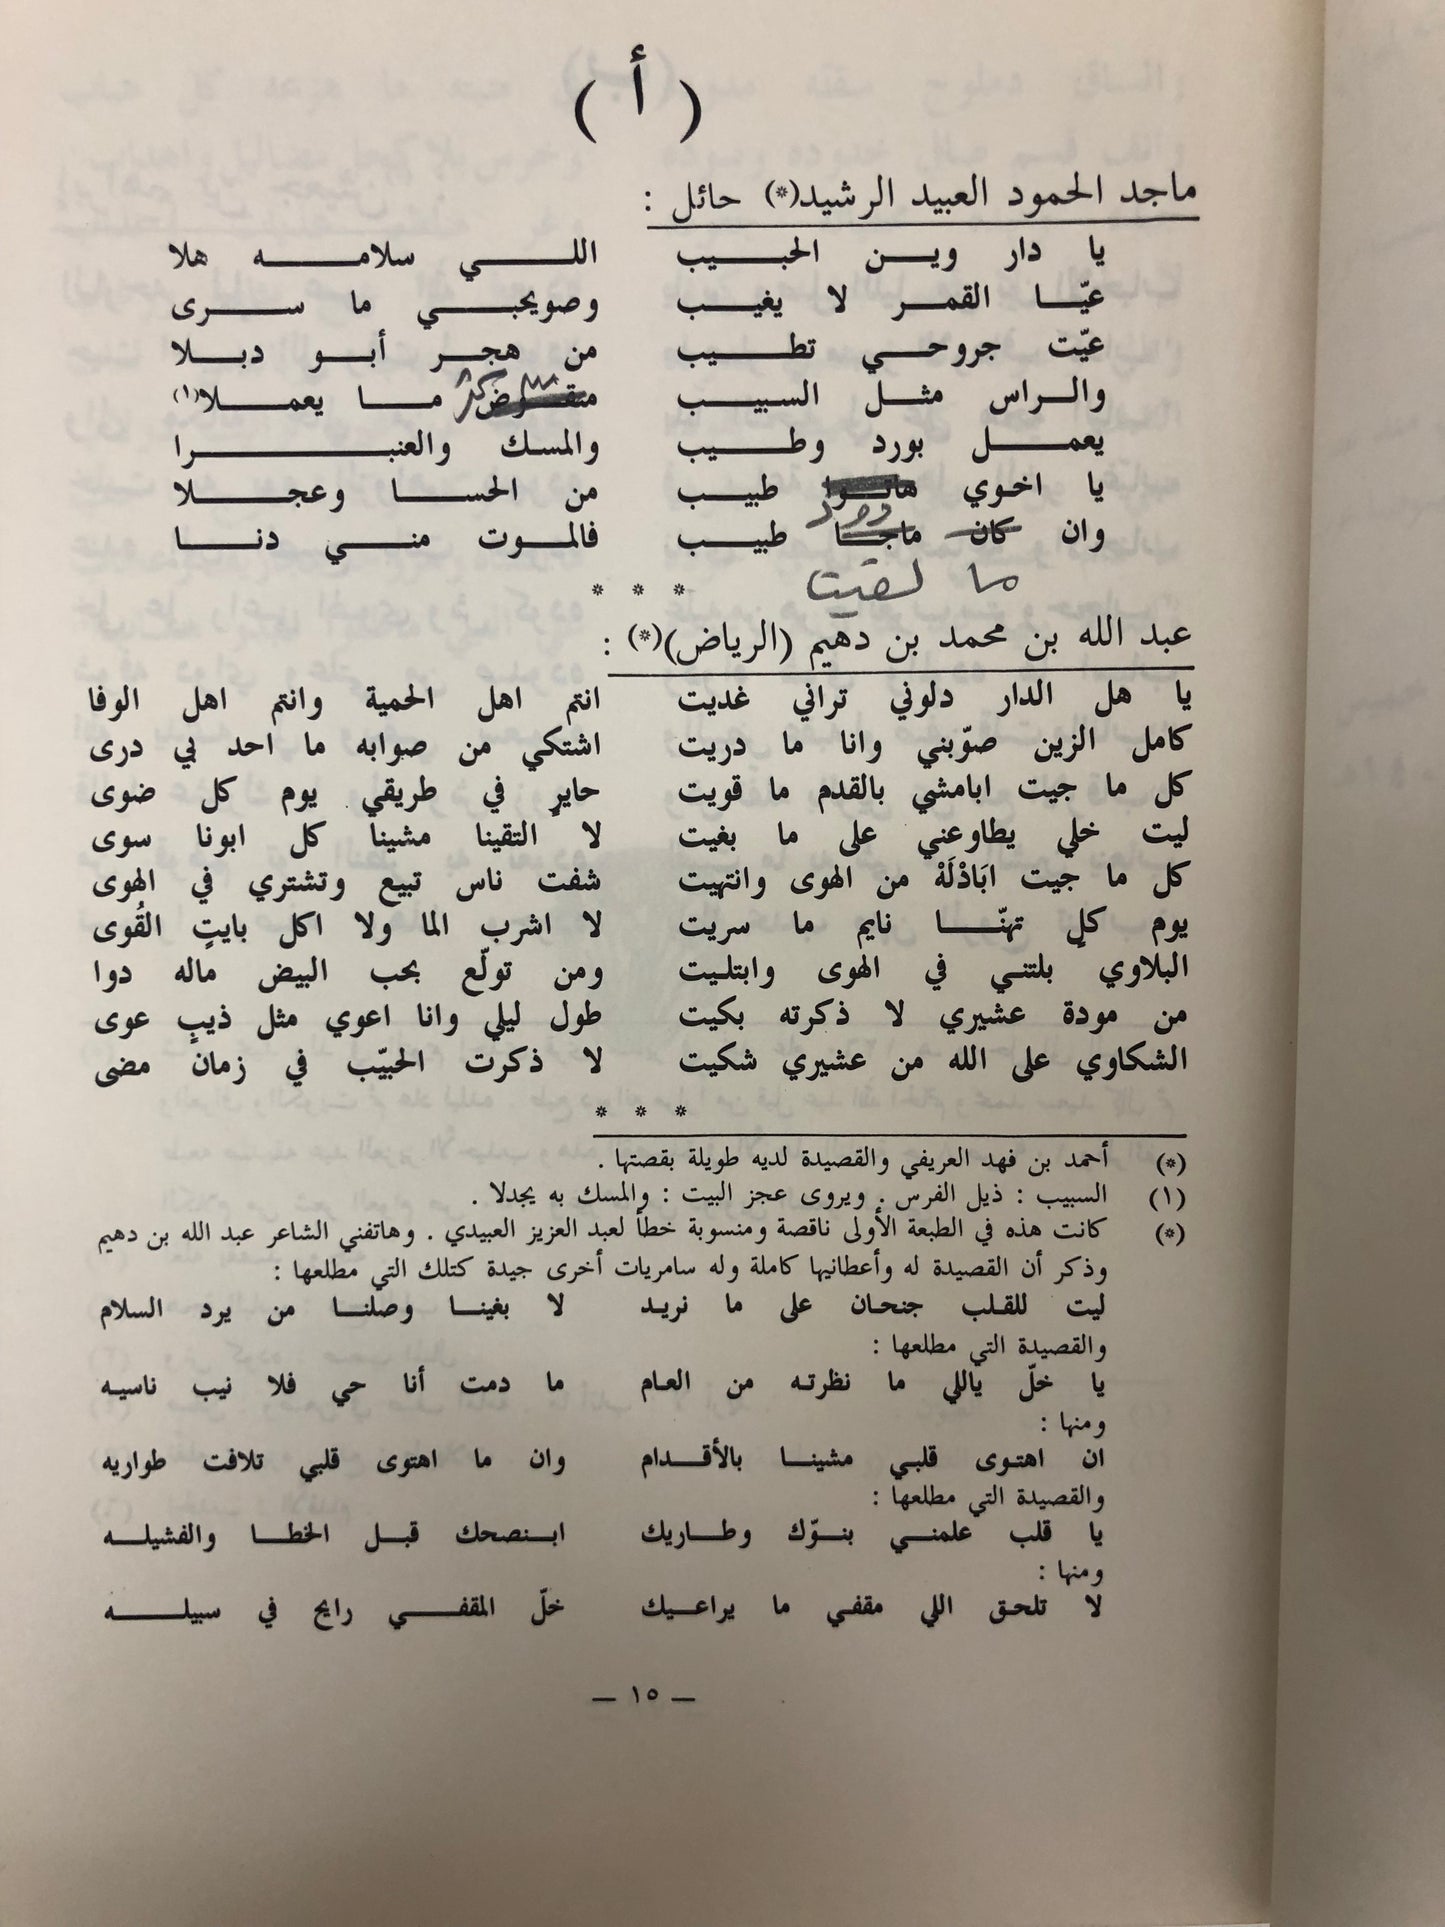 ( أ )
ماجد الحمود العبيد الرشيد(*) حائل :
يا دار وين الحبيب اللي سلامه هلا
عيّا القمر لا يغيب وصويحبي ما سرى
عيّت جروحي تطيب من هجر أبو دبلا
والراس مثل السبيب متقوض ما يعملا(١)
يعمل بورد وطيب والمسك والعنبرا
يا اخوي هاتوا طبيب من الحسا وعجلا
وان كان ماجا طبيب فالموت مني دنا
ما لقيت
* * *
عبد الله بن محمد بن دهيم (الرياض)(*) :
يا هل الدار دلوني تراني غديت انتم اهل الحمية وانتم اهل الوفا
كامل الزين صوّبني وانا ما دريت اشتكي من صوابه ما احد بي درى
كل ما جيت ابامشي بالقدم ما قويت حايرٍ في طريقي يوم كل ضوى
ليت خلي يطاوعني على ما بغيت لا التقينا مشينا كل ابونا سوى
كل ما جيت ابَاذْلَهْ من الهوى وانتهيت شفت ناس تبيع وتشتري في الهوى
يوم كلٍ تهنّا نايم ما سريت لا اشرب الما ولا اكل بايتٍ القُوى
البلاوي بلتني في الهوى وابتليت ومن تولّع بحب البيض ماله دوا
من مودة عشيري لا ذكرته بكيت طول ليلي وانا اعوي مثل ذيبٍ عوى
الشكاوي على الله من عشيري شكيت لا ذكرت الحبيّب في زمان مضى
* * *
(*) أحمد بن فهد العريفي والقصيدة لديه طويلة بقصتها .
(١) السبيب : ذيل الفرس . ويروى عجز البيت : والمسك به يجدلا .
(*) كانت هذه في الطبعة الأولى ناقصة ومنسوبة خطأ لعبد العزيز العبيدي . وهاتفني الشاعر عبد الله بن دهيم
وذكر أن القصيدة له وأعطانيها كاملة وله سامريات أخرى جيدة كتلك التي مطلعها :
ليت للقلب جنحان على ما نريد لا بغينا وصلنا من يرد السلام
والقصيدة التي مطلعها :
يا خلّ ياللي ما نظرته من العام ما دمت أنا حي فلا نيب ناسيه
ومنها :
ان اهتوى قلبي مشينا بالأقدام وان ما اهتوى قلبي تلافت طواريه
والقصيدة التي مطلعها :
يا قلب علمني بنوّك وطاريك ابنصحك قبل الخطا والفشيله
ومنها :
لا تلحق اللي مقفي ما يراعيك خلّ المقفي رايح في سبيله
— ١٥ —